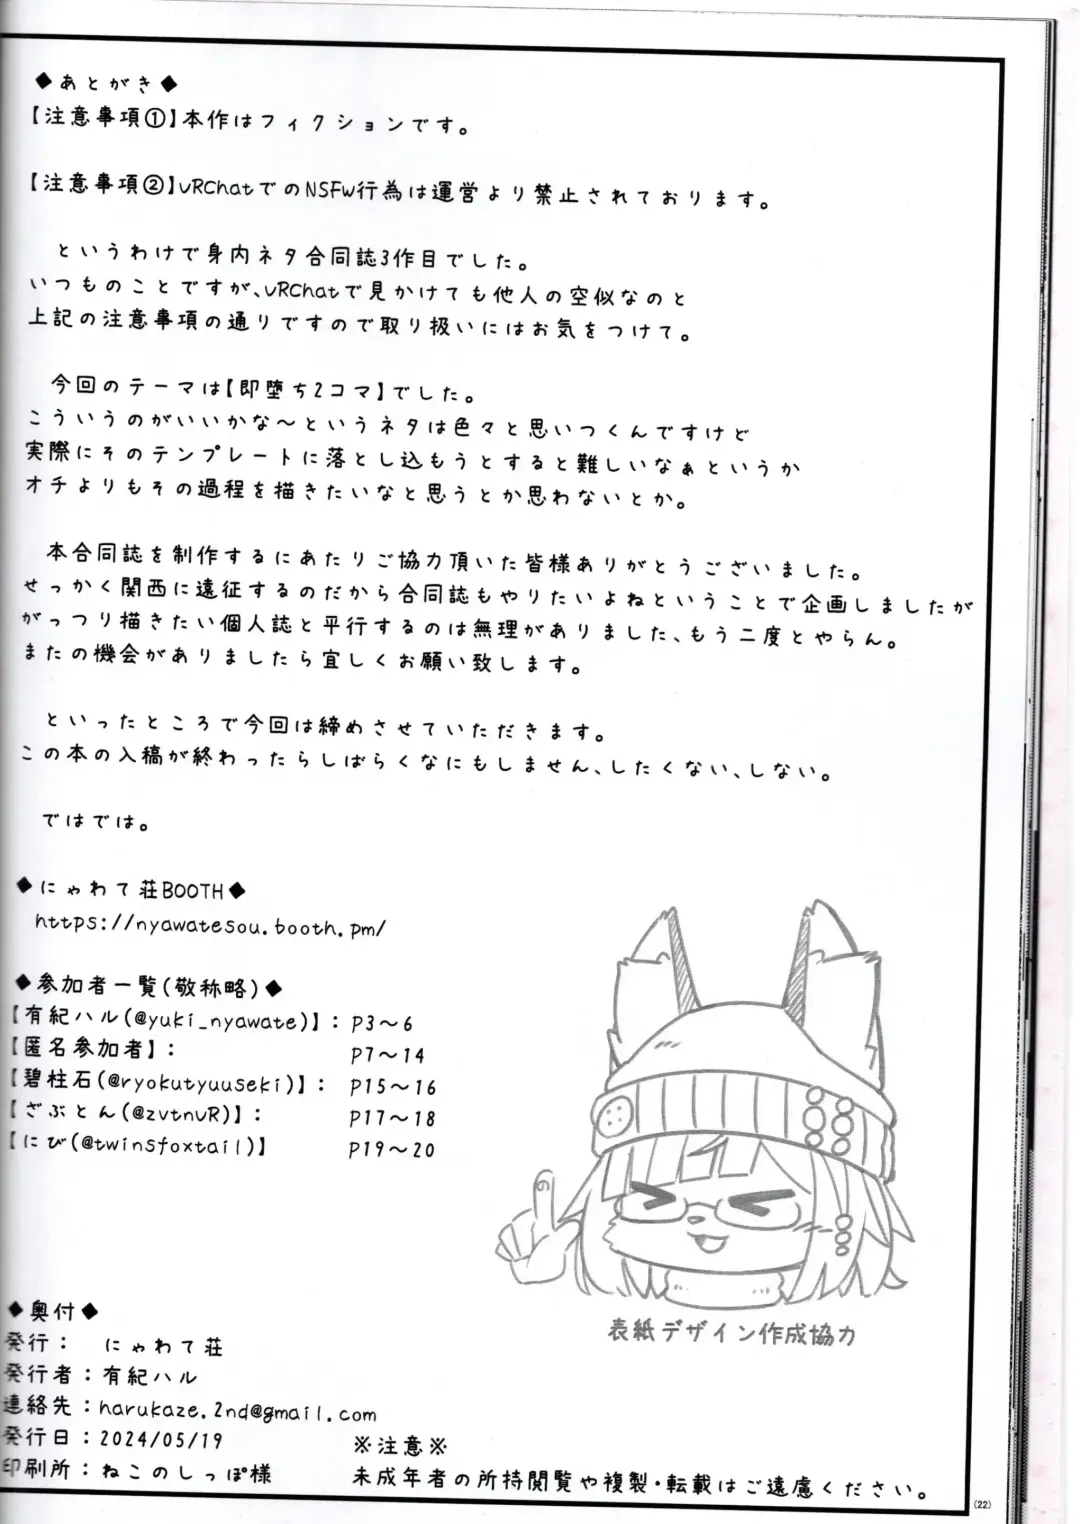 ◆あとがき◆
【注意事項①】本作はフィクションです。
【注意事項②】VRChatでのNSFW行為は運営より禁止されております。
というわけで身内ネタ合同誌3作目でした。
いつものことですが、VRChatで見かけても他人の空似なのと
上記の注意事項の通りですので取り扱いにはお気をつけて。
今回のテーマは【即堕ち2コマ】でした。
こういうのがいいかな～というネタは色々と思いつくんですけど
実際にそのテンプレートに落とし込もうとすると難しいなぁというか
オチよりもその過程を描きたいなと思うとか思わないとか。
本合同誌を制作するにあたりご協力頂いた皆様ありがとうございました。
せっかく関西に遠征するのだから合同誌もやりたいよねということで企画しましたが
がっつり描きたい個人誌と平行するのは無理がありました、もう二度とやらん。
またの機会がありましたら宜しくお願い致します。
といったところで今回は締めさせていただきます。
この本の入稿が終わったらしばらくなにもしません、したくない、しない。
ではでは。
◆にゃわて荘BOOTH◆
https://nyawatesou.booth.pm/
◆参加者一覧(敬称略)◆
【有紀ハル(@yuki_nyawate)】: P3～6
【匿名参加者】: P7～14
【碧柱石(@ryokutyuuseki)】: P15～16
【ざぶとん(@zvtnVR)】: P17～18
【にび(@twinsfoxtail)】 P19～20
表紙デザイン作成協力
◆奥付◆
発行: にゃわて荘
発行者:有紀ハル
連絡先:harukaze.2nd@gmail.com
発行日:2024/05/19
印刷所:ねこのしっぽ様
※注意※
未成年者の所持閲覧や複製・転載はご遠慮ください。
(22)